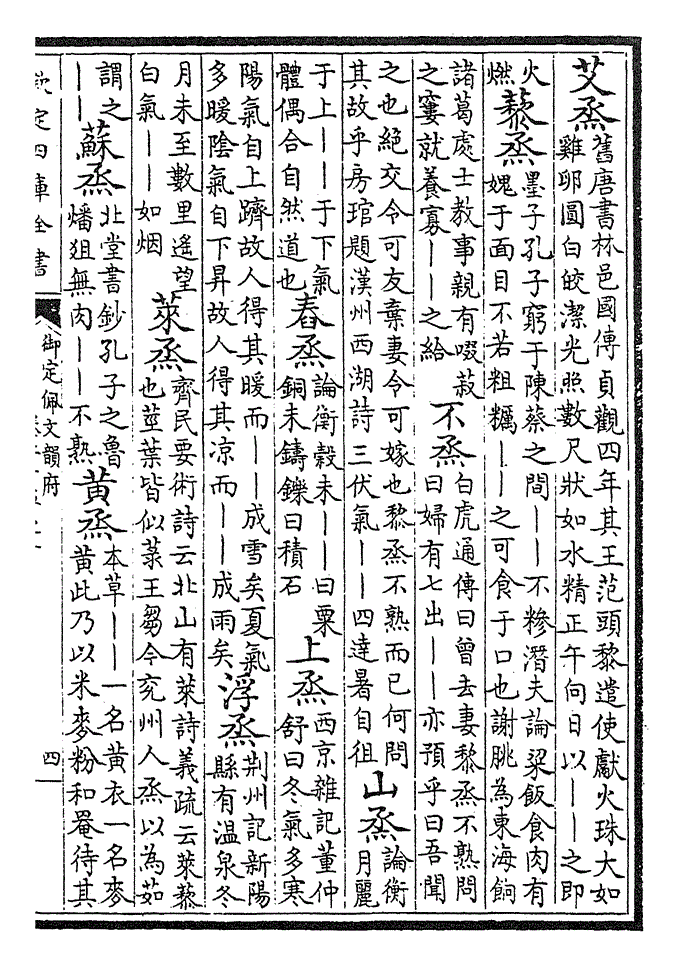 艾烝
舊唐書林邑國傳貞觀四年其王范頭黎遣使獻火珠大如
雞卵圓白皎潔光照數尺狀如水精正午向日以——之即
火
燃
藜烝
墨子孔子窮于陳蔡之間——不糝潛夫論粱飯食肉有
媿于面目不若粗糲——之可食于口也謝朓為東海餉
諸葛處士教事親有啜菽
之窶就養寡——之給
不烝
白虎通傳曰曾去妻黎烝不熟問
曰婦有七出——亦預乎曰吾聞
之也絶交令可友棄妻令可嫁也黎烝不熟而已何問
其故乎房琯題漢州西湖詩三伏氣——四達暑自徂
山烝
論衡
月麗
于上——于下氣
體偶合自然道也
舂烝
論衡穀未——曰粟
銅未鑄鑠曰積石
上烝
西京雜記董仲
舒曰冬氣多寒
陽氣自上躋故人得其暖而——成雪矣夏氣
多暖陰氣自下昇故人得其凉而——成雨矣
浮烝
荆州記新陽
縣有温泉冬
月未至數里遥望
白氣——如烟
萊烝
齊民要術詩云北山有萊詩義疏云萊藜
也莖葉皆似菉王芻今兖州人烝以為茹
謂之
——
蘇烝
北堂書鈔孔子之魯
燔狙無肉——不熟
黄烝
本草——一名黄衣一名麥
黄此乃以米麥粉和罨待其
欽定四庫全書
御定佩文韻府
四